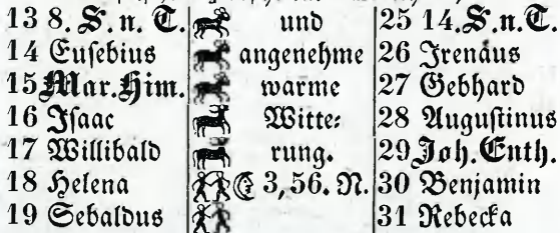 13 8. S. n. T. und 25 14. S. n. T.
14 Euſebius angenehme 26 Irenäus
15 Mar. Him. warme 27 Gebhard
16 Iſaac Witte⸗ 28 Auguſtinus
17 Willibald rung. 29 Joh. Enth.
18 Helena ☾ 3,56. N. 30 Benjamin
19 Sebaldus 31 Rebecka